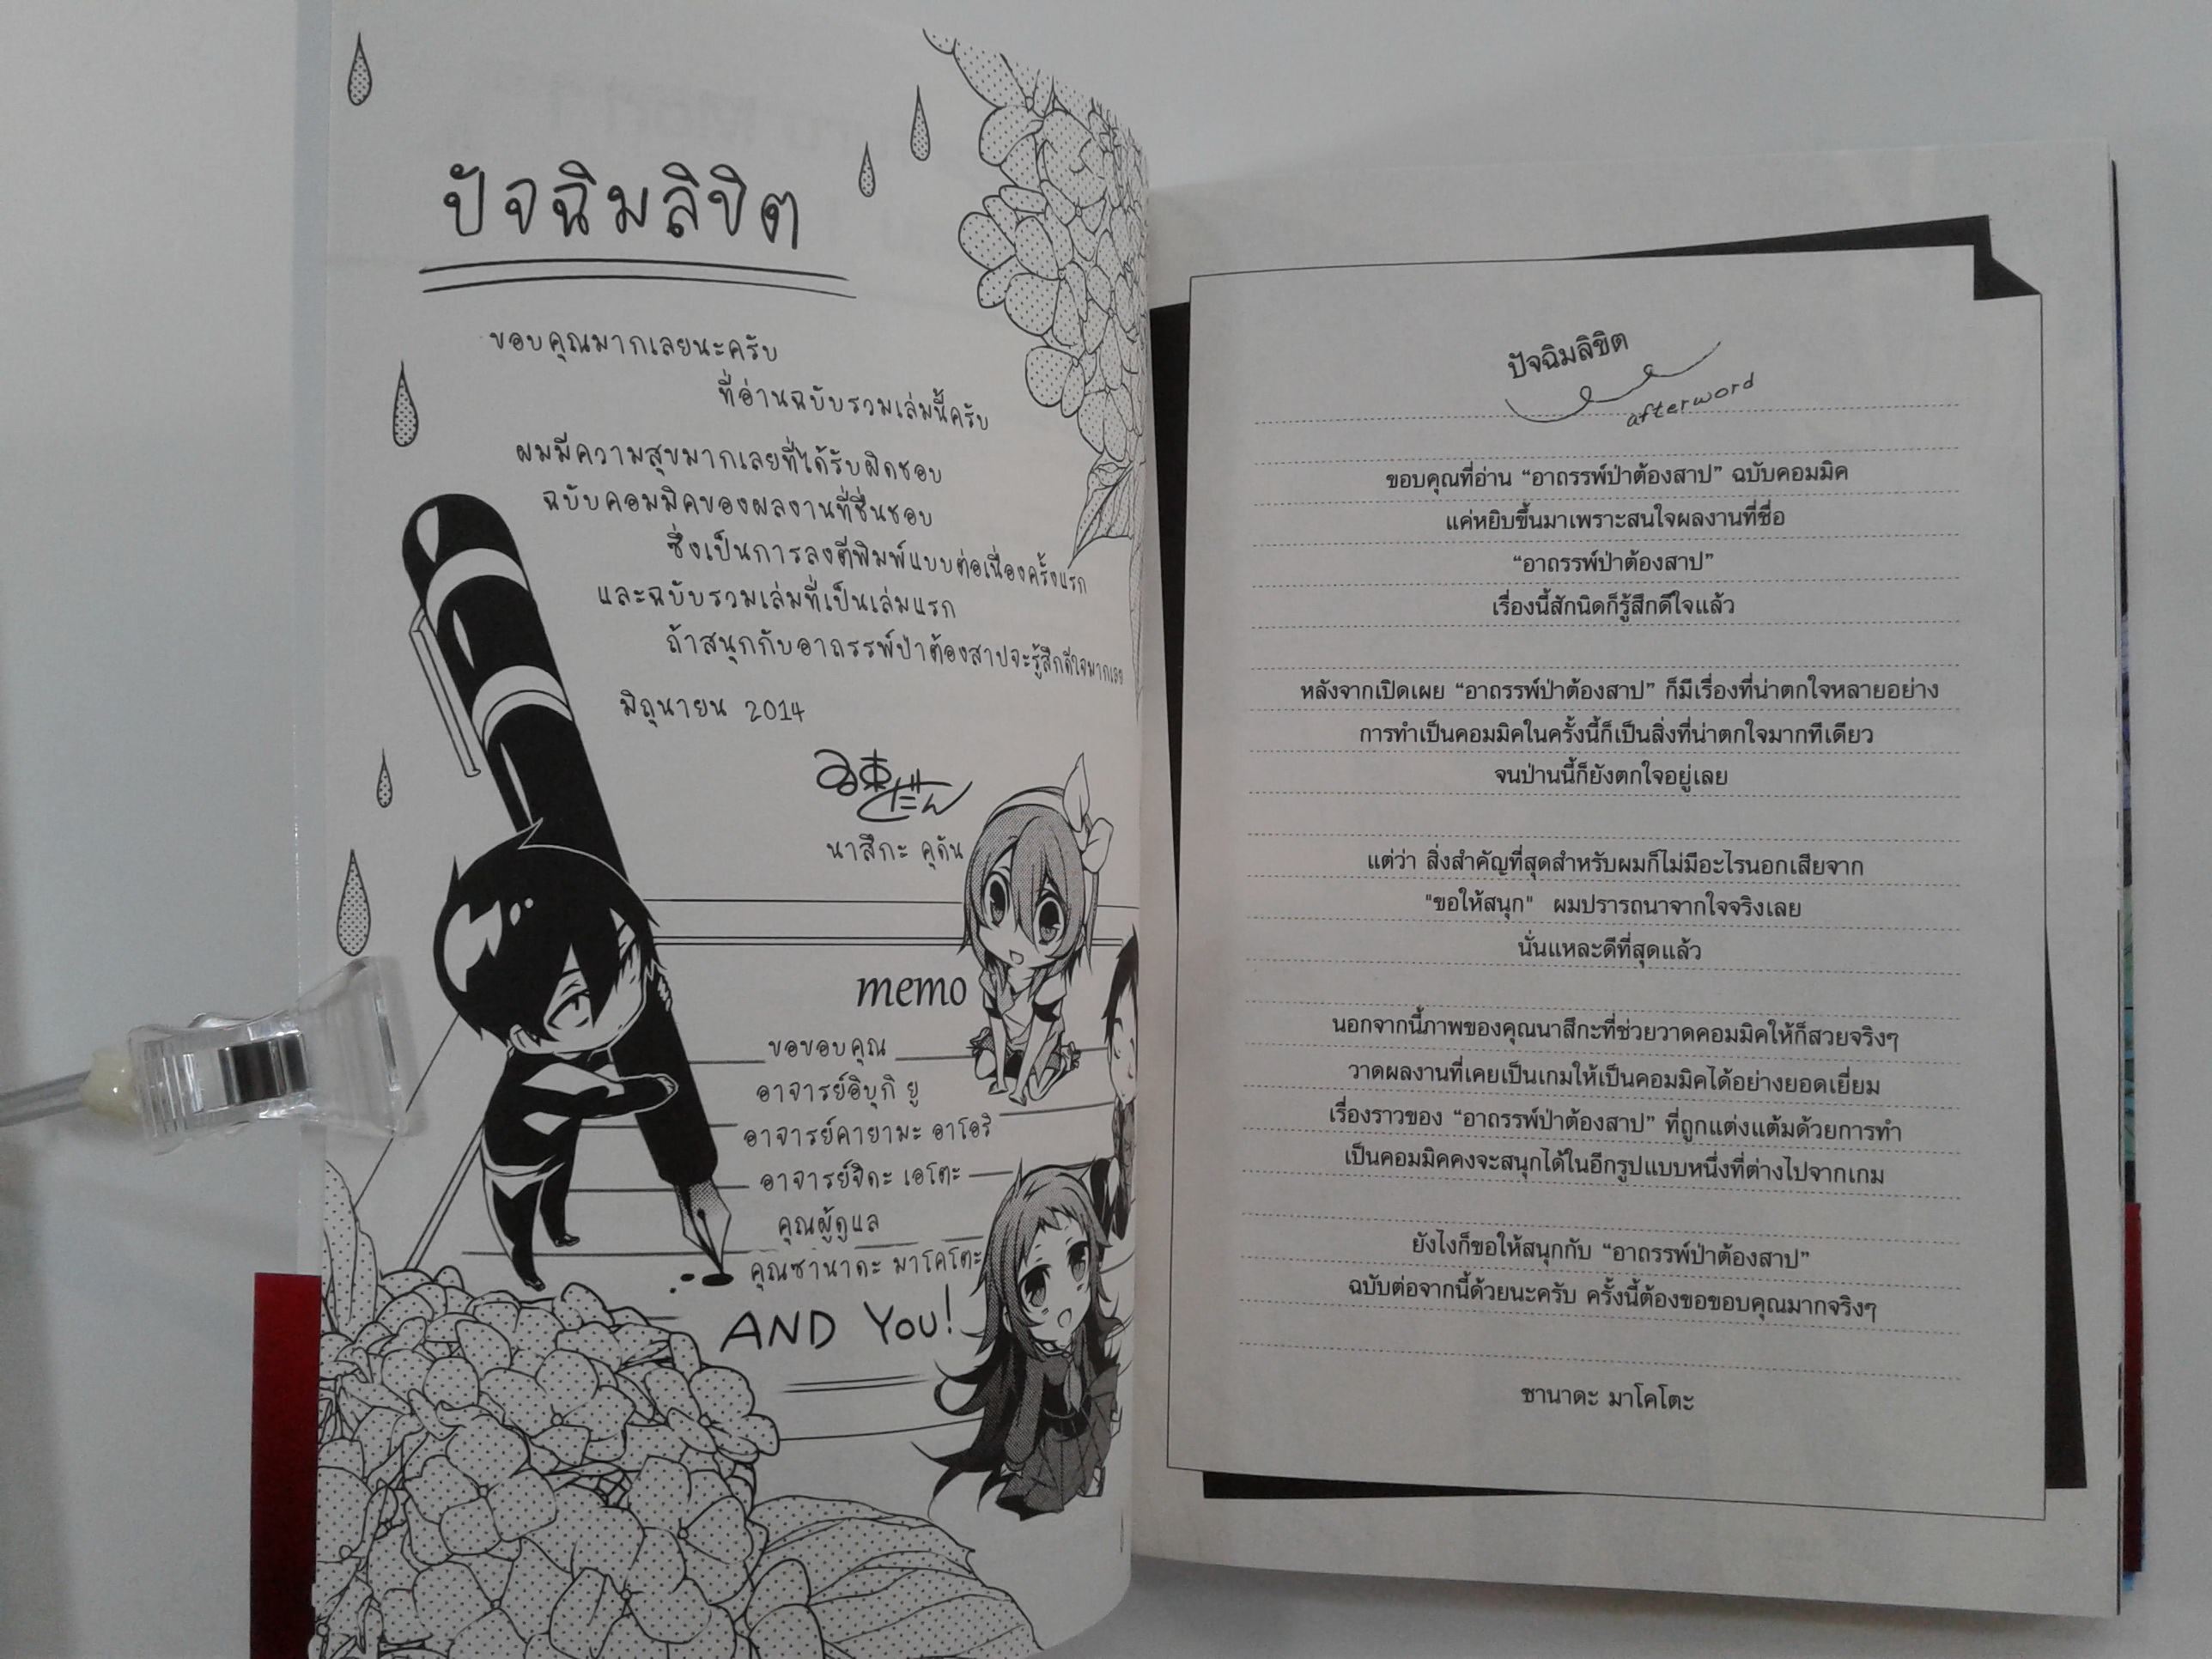 ปัจฉิมลิขิต
ขอบคุณมากเลยนะครับ
ที่อ่านฉบับรวมเล่มนี้ครับ
ผมมีความสุขมากเลยที่ได้รับผิดชอบ
ฉบับคอมมิคของผลงานที่ชื่นชอบ
ซึ่งเป็นการลงตีพิมพ์แบบต่อเนื่องครั้งแรก
และฉบับรวมเล่มที่เป็นเล่มแรก
ถ้าสนุกกับอาถรรพ์ป่าต้องสาปจะรู้สึกดีใจมากเลย
มิถุนายน 2014
นาสึกะ คุดัน
memo
ขอขอบคุณ
อาจารย์อิบุกิ ยู
อาจารย์คายามะ อาโอริ
อาจารย์จิดะ เอโตะ
คุณผู้ดูแล
คุณซานาดะ มาโคโตะ
AND YOU!
ปัจฉิมลิขิต
afterword
ขอบคุณที่อ่าน “อาถรรพ์ป่าต้องสาป” ฉบับคอมมิค
แค่หยิบขึ้นมาเพราะสนใจผลงานที่ชื่อ
“อาถรรพ์ป่าต้องสาป”
เรื่องนี้สักนิดก็รู้สึกดีใจแล้ว
หลังจากเปิดเผย “อาถรรพ์ป่าต้องสาป” ก็มีเรื่องที่น่าตกใจหลายอย่าง
การทำเป็นคอมมิคในครั้งนี้ก็เป็นสิ่งที่น่าตกใจมากทีเดียว
จนป่านนี้ก็ยังตกใจอยู่เลย
แต่ว่า สิ่งสำคัญที่สุดสำหรับผมก็ไม่มีอะไรนอกเสียจาก
"ขอให้สนุก" ผมปรารถนาจากใจจริงเลย
นั่นแหละดีที่สุดแล้ว
นอกจากนี้ภาพของคุณนาสึกะที่ช่วยวาดคอมมิคให้ก็สวยจริงๆ
วาดผลงานที่เคยเป็นเกมให้เป็นคอมมิคได้อย่างยอดเยี่ยม
เรื่องราวของ “อาถรรพ์ป่าต้องสาป” ที่ถูกแต่งแต้มด้วยการทำ
เป็นคอมมิคคงจะสนุกได้ในอีกรูปแบบหนึ่งที่ต่างไปจากเกม
ยังไงก็ขอให้สนุกกับ “อาถรรพ์ป่าต้องสาป”
ฉบับต่อจากนี้ด้วยนะครับ ครั้งนี้ต้องขอขอบคุณมากจริงๆ
ซานาดะ มาโคโตะ